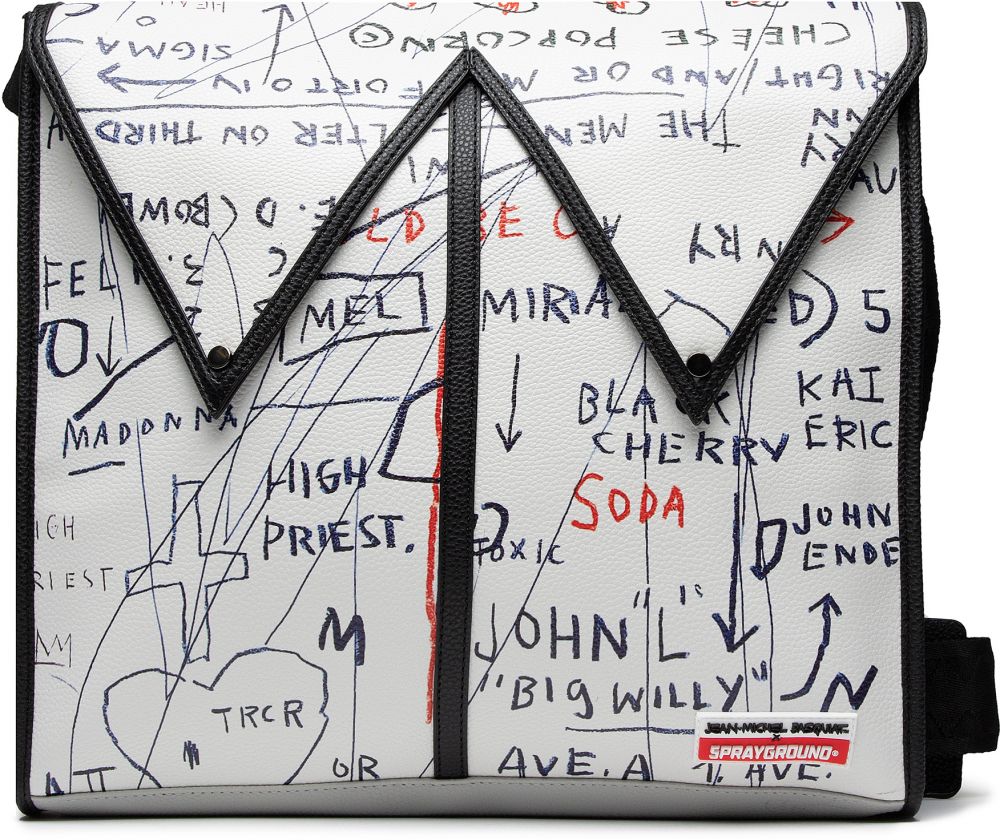 SIGMA
CHEESE POPCORN ©
RIGHT/AND OR M
FORTO IV
LTER ON THIRD A
THE MEN
E. D (BOWE
LD BE
RY
3.
FEL
MEL
MIRIA
ED) 5
MADONNA
BLACK
CHERRY
KAI
ERIC
HIGH
PRIEST.
SODA
JOHN
ENDE
IGH
RIEST
TOXIC
M
JOHN "L"
"BIG WILLY"
N
TRCR
OR
AVE. A 1. AVE.
JEAN-MICHEL BASQUIAT
X
SPRAYGROUND®